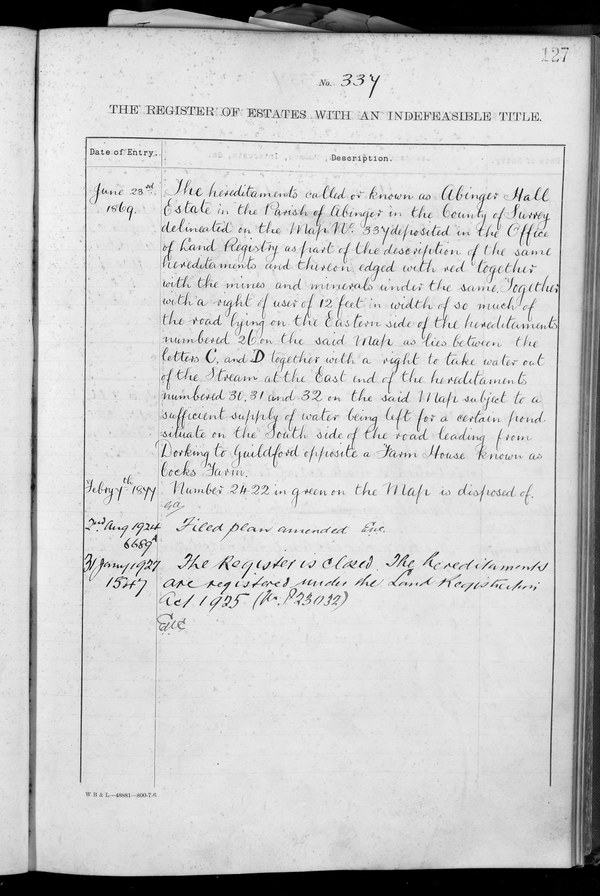 127
No. 337
THE REGISTER OF ESTATES WITH AN INDEFEASIBLE TITLE.
Date of Entry. Description.
June 23rd 1869. The hereditaments called or known as Abinger Hall
Estate in the Parish of Abinger in the County of Surrey
delineated on the Map No. 337 deposited in the Office
of Land Registry as part of the description of the same
hereditaments and thereon edged with red together
with the mines and minerals under the same. Together
with a right of user of 12 feet in width of so much of
the road lying on the Eastern side of the hereditaments
numbered 26 on the said Map as lies between the
letters C. and D together with a right to take water out
of the Stream at the East end of the hereditaments
numbered 30, 31 and 32 on the said Map subject to a
sufficient supply of water being left for a certain pond
situate on the South side of the road leading from
Dorking to Guildford opposite a Farm House known as
Cocks Farm.
Febry 7th 1877 Number 2422 in green on the Map is disposed of.
2nd Aug 1924 Filed plan amended
6689
31 Jany 1927 The Register is closed. The hereditaments
1547 are registered under the Land Registration
Act 1925 (No. P23032)
W B & L.—48881—800-7-6